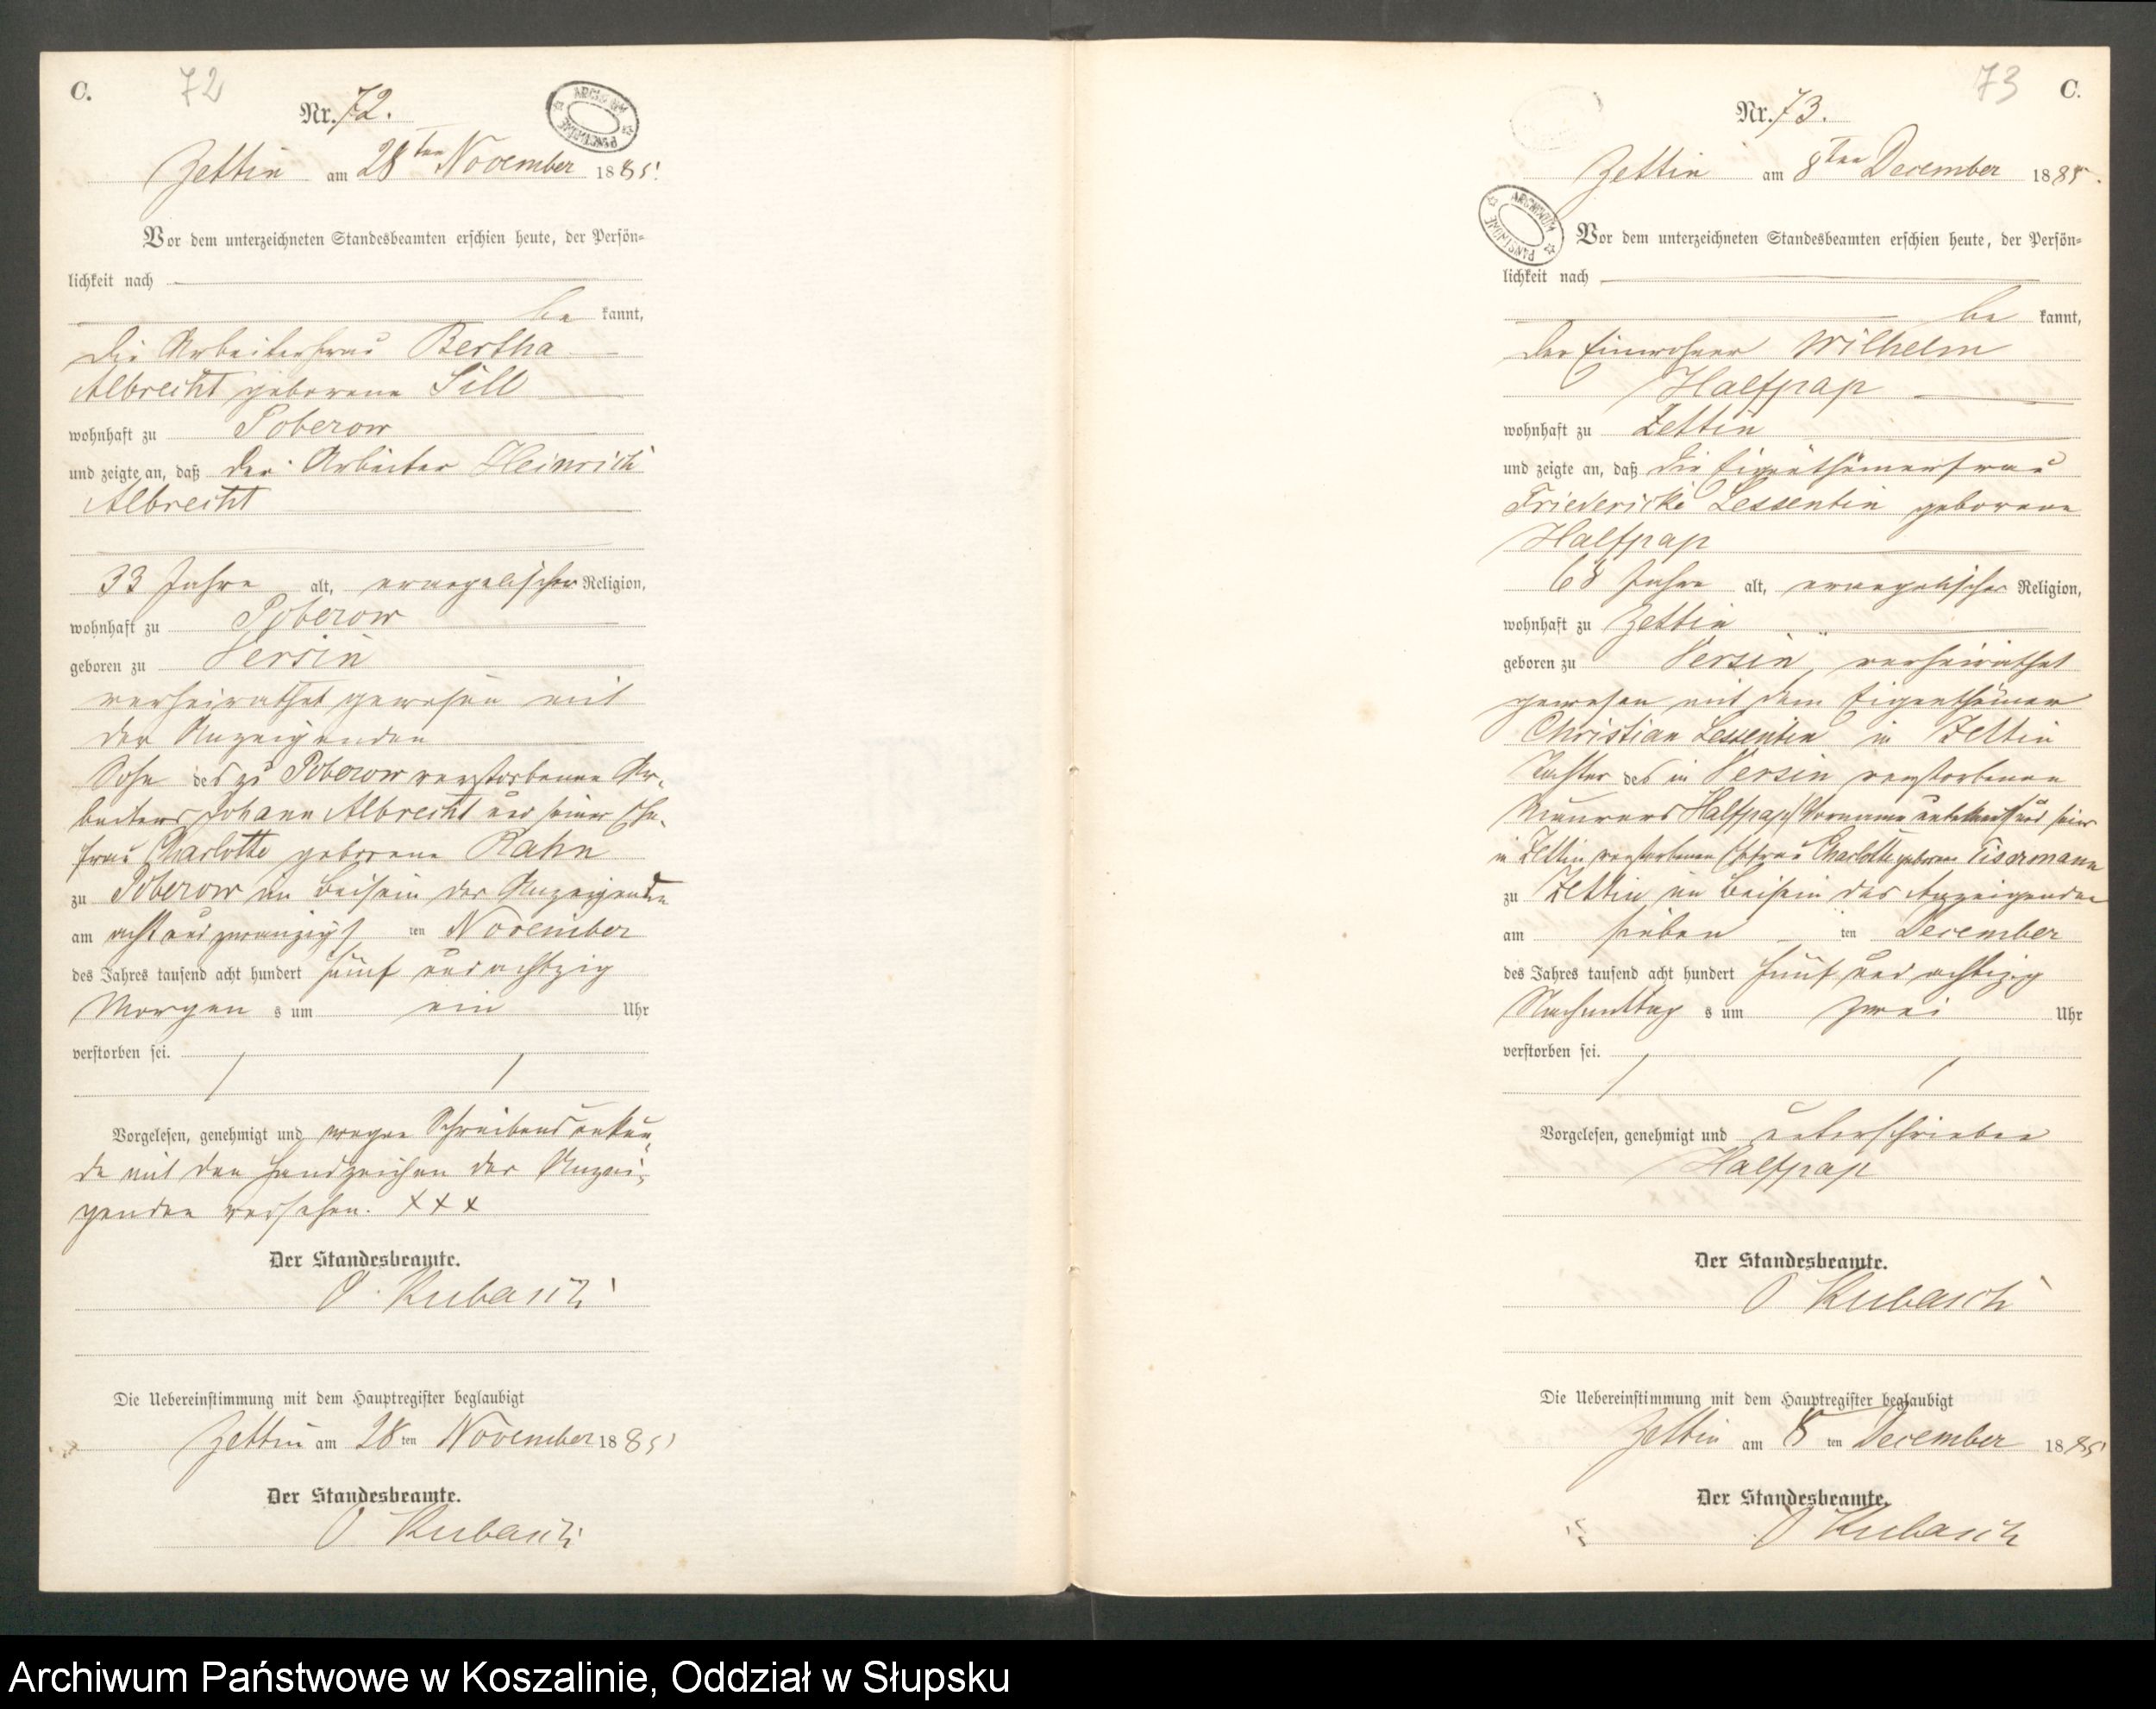 C.
72
Nr. 72.
ARCHIWUM PAŃSTWOWE
Zettin am 28ten November 1885.
Vor dem unterzeichneten Standesbeamten erschien heute, der Persön-
lichkeit nach
be kannt,
die Arbeiterfrau Bertha
Albrecht geborene Sill
wohnhaft zu Poberow
und zeigte an, daß der Arbeiter Heinrich
Albrecht
33 Jahre alt, evangelischer Religion,
wohnhaft zu Poberow
geboren zu Versin
verheirathet gewesen mit
der Anzeigenden
Sohn des zu Poberow verstorbenen Ar-
beiters Johann Albrecht und seiner Ehe-
frau Charlotte geborene Rahn
zu Poberow im Beisein der Anzeigenden
am acht und zwanzigs ten November
des Jahres tausend acht hundert fünf und achtzig
Morgen s um ein Uhr
verstorben sei.
Vorgelesen, genehmigt und wegen Schreibensunkun-
de mit den Handzeichen der Anzei-
genden versehen. XXX
Der Standesbeamte.
O. Kubasch
Die Uebereinstimmung mit dem Hauptregister beglaubigt
Zettin am 28 ten November 1885
Der Standesbeamte.
O Kubasch
73
C.
Nr. 73.
Zettin am 8ten December 1885.
ARCHIWUM PAŃSTWOWE
Vor dem unterzeichneten Standesbeamten erschien heute, der Persön-
lichkeit nach
be kannt,
der Einwohner Wilhelm
Halfpap
wohnhaft zu Zettin
und zeigte an, daß die Eigenthümerfrau
Friedericke Lessentin geborene
Halfpap
68 Jahre alt, evangelischer Religion,
wohnhaft zu Zettin
geboren zu Versin, verheirathet
gewesen mit dem Eigenthümer
Christian Lessentin in Zettin
Tochter des in Versin verstorbenen
Maurers Halfpap (Vorname unbekannt) und seiner
in Zettin verstorbenen Ehefrau Charlotte geborene
zu Zettin im Beisein des Anzeigenden
am sieben ten December
des Jahres tausend acht hundert fünf und achtzig
Nachmittag s um zwei Uhr
verstorben sei.
Vorgelesen, genehmigt und unterschrieben
Halfpap
Der Standesbeamte.
O Kubasch
Die Uebereinstimmung mit dem Hauptregister beglaubigt
Zettin am 8 ten December 1885
Der Standesbeamte.
O Kubasch
Archiwum Państwowe w Koszalinie, Oddział w Słupsku